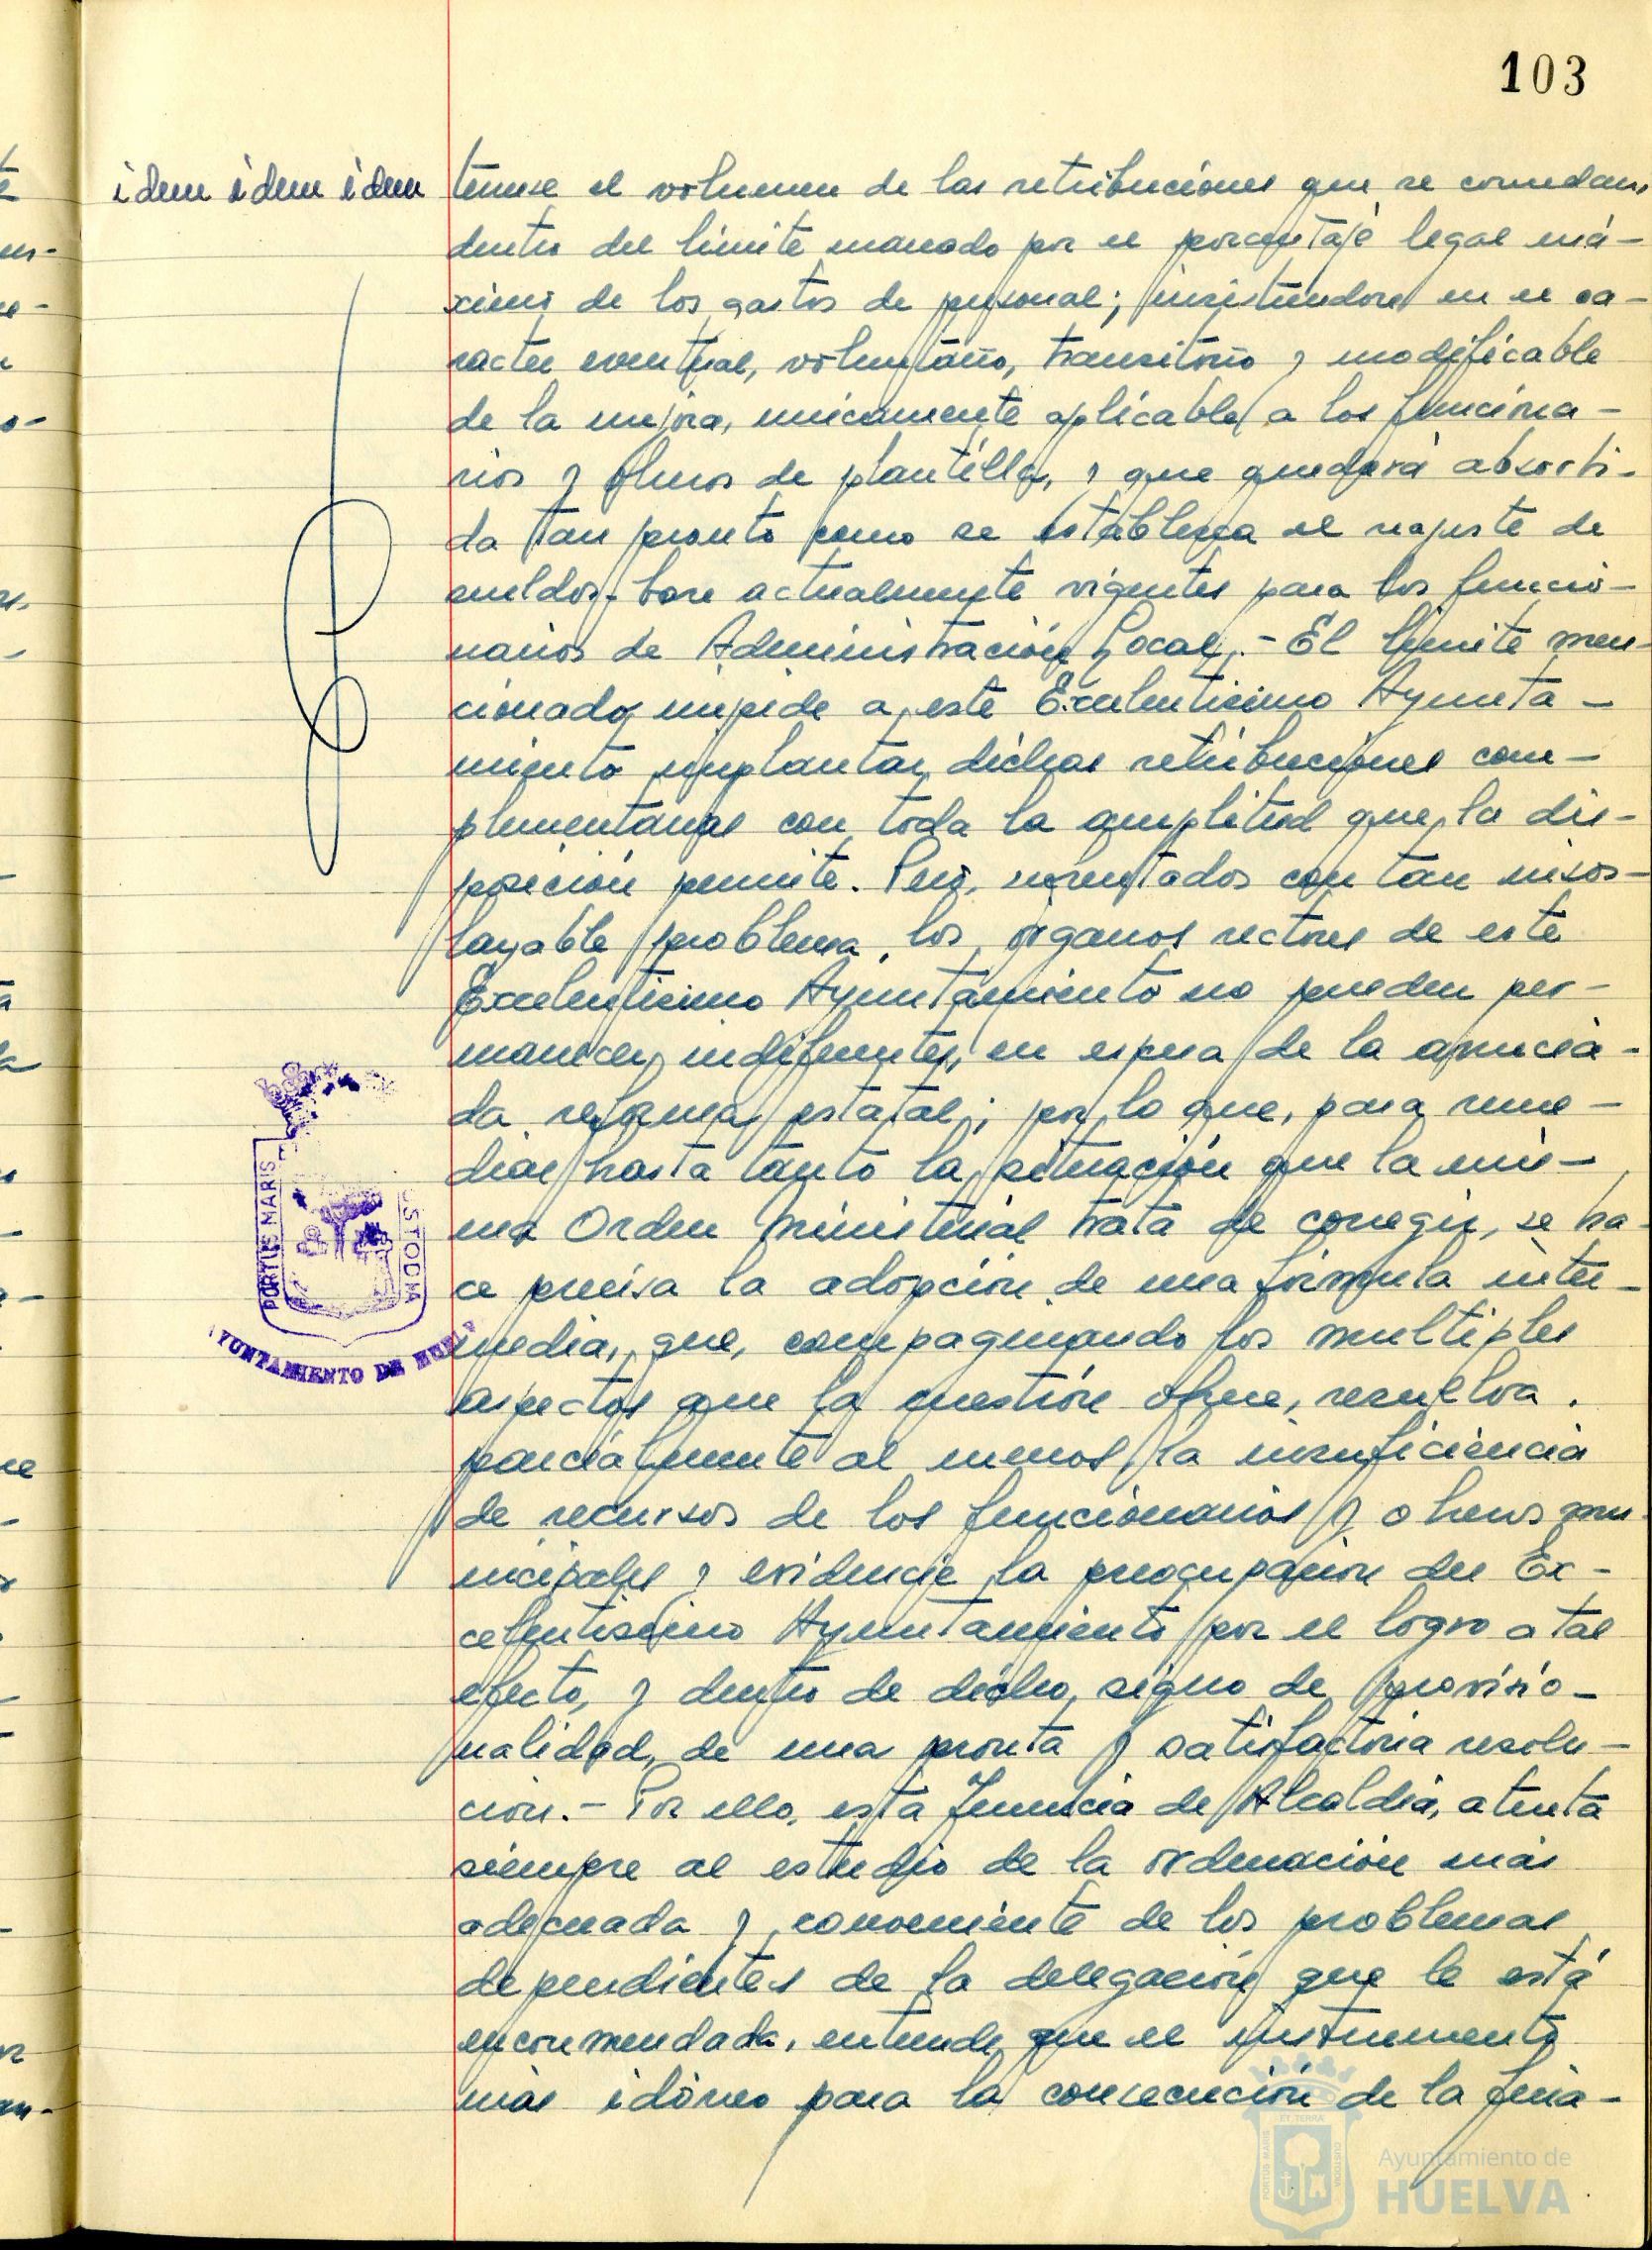 103
idem idem idem
tenerse el volumen de las retribuciones que se concedan,
dentro del límite marcado por el porcentaje legal má-
ximo de los gastos de personal; insistiendose en el ca-
racter eventual, voluntario, transitorio y modificable
de la mejora, unicamente aplicable a los funciona-
rios y obreros de plantilla, y que quedará absorbi-
da tan pronto como se establezca el reajuste de
sueldos-base actualmente vigentes para los funcio-
narios de Administración Local.- El limite men-
cionado impide a este Excelentisimo Ayunta-
miento implantar dichas retribuciones com-
plementarias con toda la amplitud que la dis-
posición permite. Pero, enfrentados con tan insos-
layable problema, los órganos rectores de este
Excelentisimo Ayuntamiento no pueden per-
manecer indiferentes, en espera de la anuncia-
da reforma estatal; por lo que, para reme-
diar hasta tanto la situación que la mis-
ma Orden Ministerial trata de corregir, se ha-
ce precisa la adopción de una fórmula inter-
media, que, compaginando los multiples
aspectos que la cuestión ofrece, resuelva
parcialmente al menos la insuficiencia
de recursos de los funcionarios y obreros mu-
nicipales y evidencie la preocupación del Ex-
celentisimo Ayuntamiento por el logro a tal
efecto, y dentro de dicho signo de provisio-
nalidad, de una pronta y satisfactoria resolu-
ción.- Por ello, esta Tenencia de Alcaldia, atenta
siempre al estudio de la ordenación más
adecuada y conveniente de los problemas
dependientes de la delegación que le está
encomendada, entiende que el instrumento
más idóneo para la consecución de la fina-
PORTUS MARIS
CUSTODIA
AYUNTAMIENTO DE HUELVA
Ayuntamiento de
HUELVA